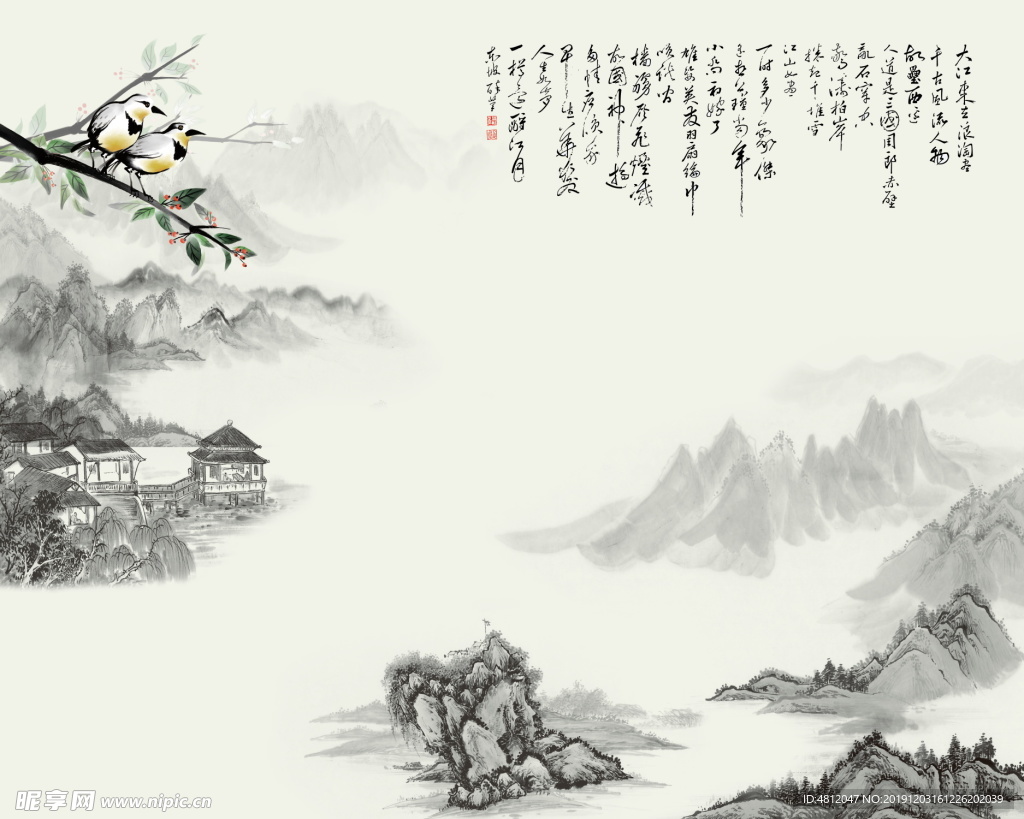 大江東去浪淘尽
千古風流人物
故壘西边
人道是三國周郎赤壁
乱石穿空
驚濤拍岸
捲起千堆雪
江山如畫
一时多少豪傑
遥想公瑾當年
小喬初嫁了
雄姿英发羽扇綸巾
談笑間
檣櫓灰飛煙滅
故國神遊
多情应笑我
早生華髮
人生如夢
一樽還酹江月
东坡
昵享网 www.nipic.cn
ID:4812047 NO:20191203161226202039